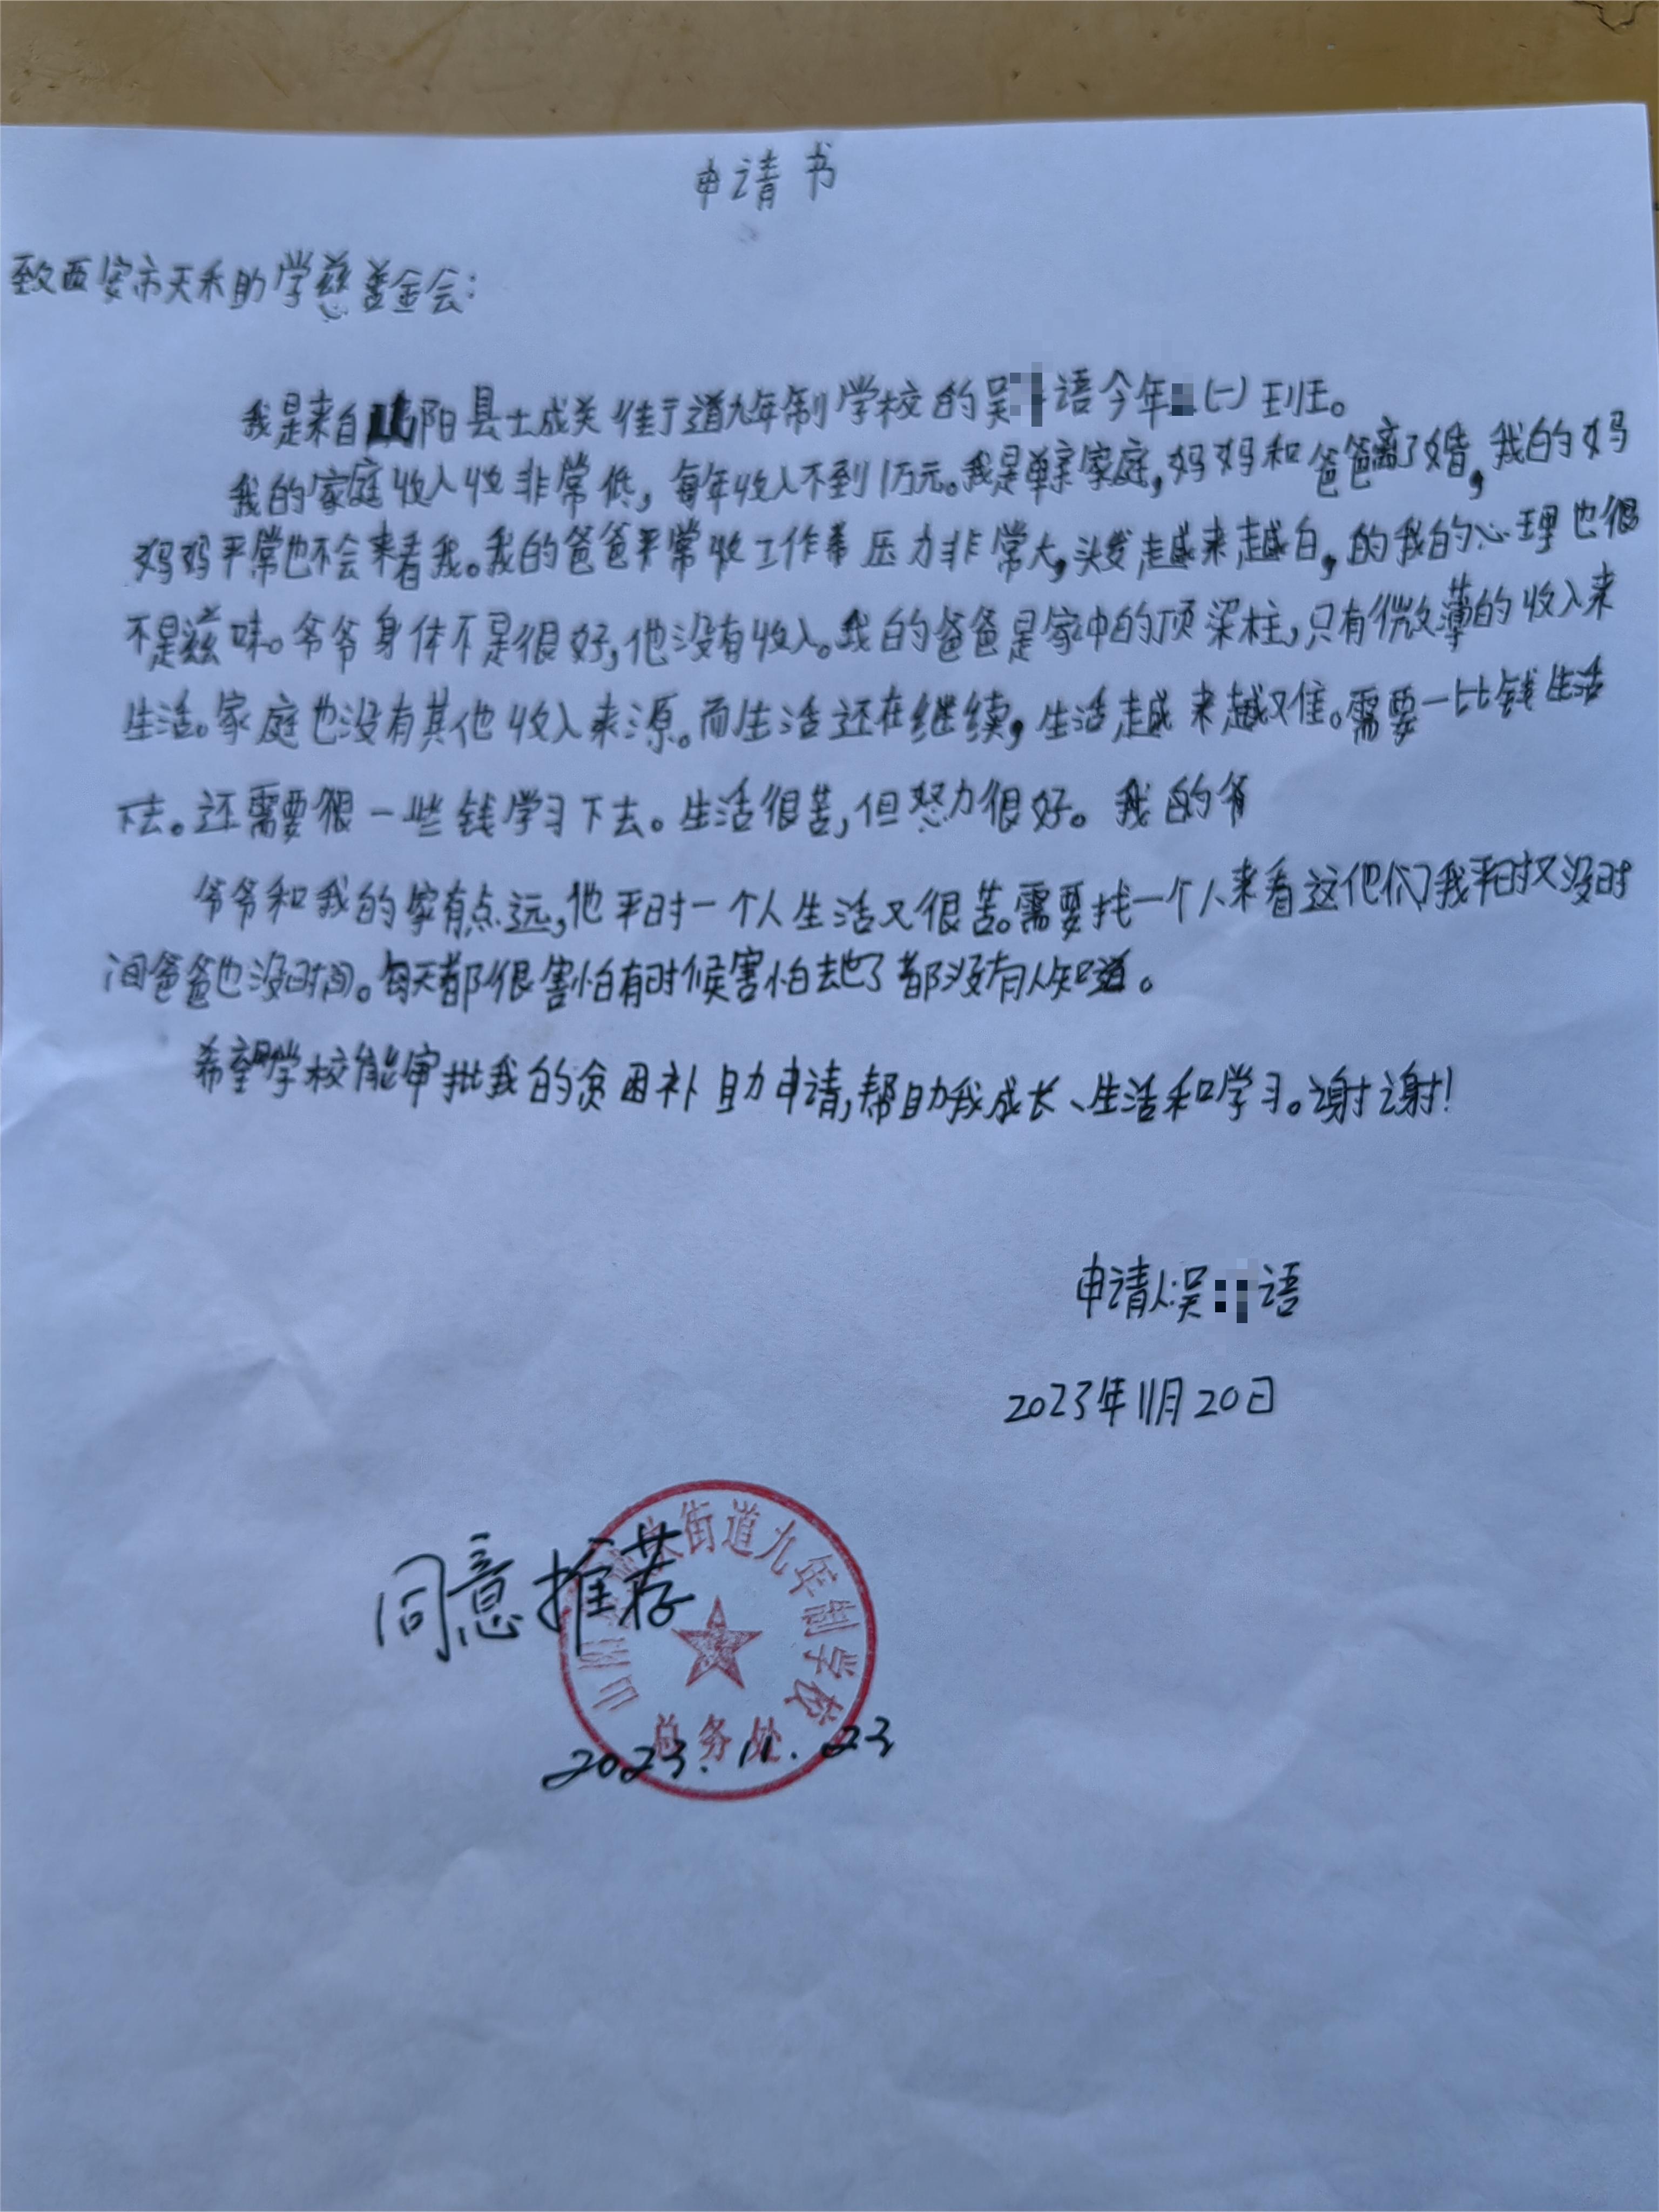 申请书
致西安市天禾助学慈善金会:
我是来自山阳县土成关街道九年制学校的吴语今年(一)班。
我的家庭收入收非常低,每年收入不到1万元。我是单亲家庭,妈妈和爸爸离了婚,我的妈
妈妈平常也不会来看我。我的爸爸平常收工作希压力非常大,头发越来越白,的我的心理也很
不是滋味。爷爷身体不是很好,他没有收入。我的爸爸是家中的顶梁柱,只有微薄的收入来
生活。家庭也没有其他收入来源。而生活还在继续,生活越来越难。需要一比钱生活
下去。还需要很一些钱学习下去。生活很苦,但努力很好。我的爷
爷爷和我的家有点远,他平时一个人生活又很苦。需要找一个人来看这他们我平时又没时
间爸爸也没时间。每天都很害怕有时候害怕去世了都没有人知道。
希望学校能审批我的贫困补助申请,帮助我成长、生活和学习。谢谢!
申请人:吴语
2023年11月20日
同意推荐
关街道九年制学校
总务处
2023.11.23